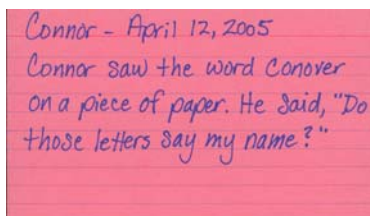 Connor - April 12, 2005
Connor saw the word Conover
on a piece of paper. He said, "Do
those letters say my name?"